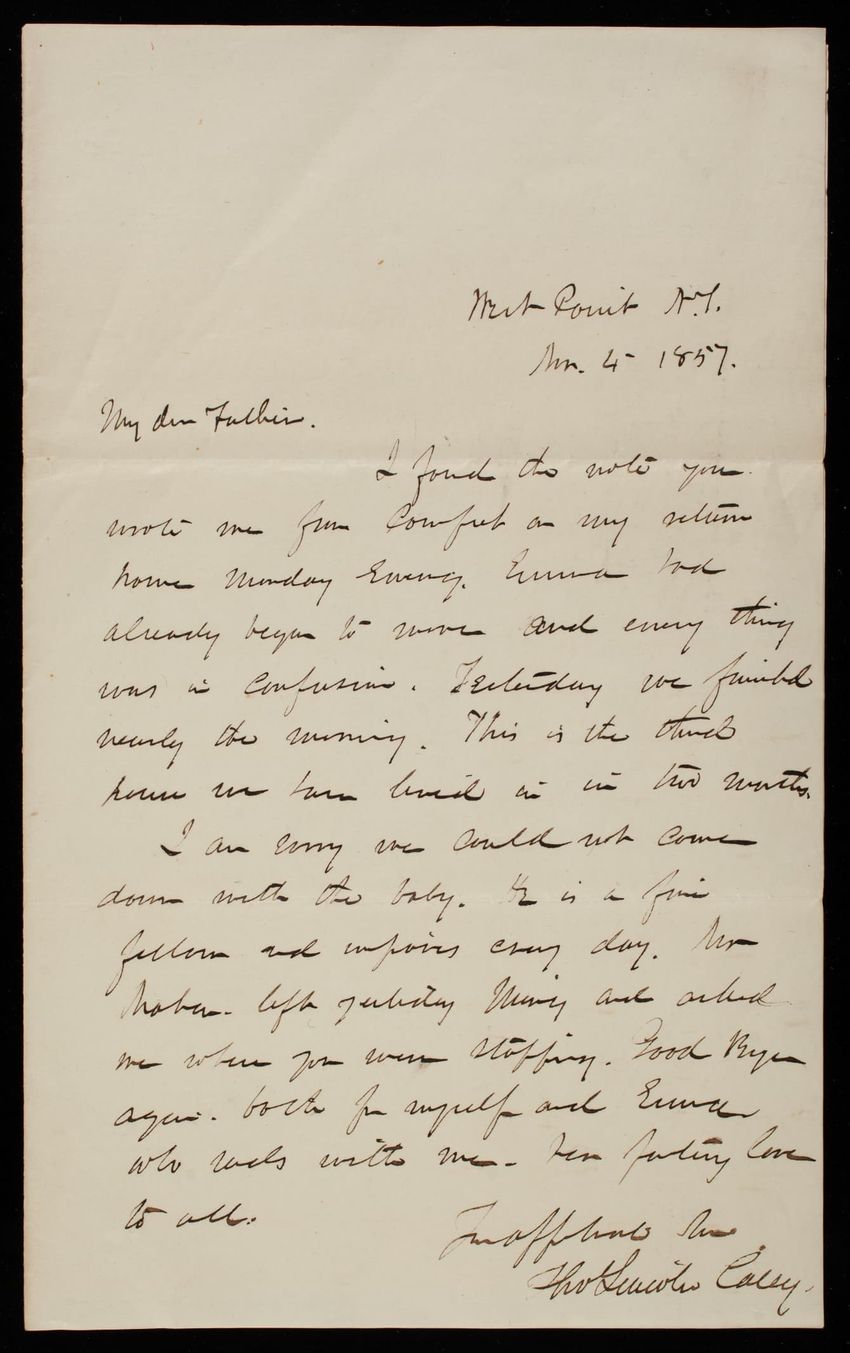 West Point N.Y.
Nov. 4 1857.
My dear Father.
I found the note you
wrote me from Comfort on my return
home Monday Evening. Emma had
already began to move and every thing
was in confusion. Yesterday we finished
nearly the moving. This is the third
house we have lived in in two months.
I am sorry we could not come
down with the baby. He is a fine
fellow and improves every day. Mr
left yesterday Morning and asked
me where you were stopping. Good Bye
again. both for myself and Emma
who sends with me her parting love
to all.
Yr affectionate Son
Tho Lincoln Casey.